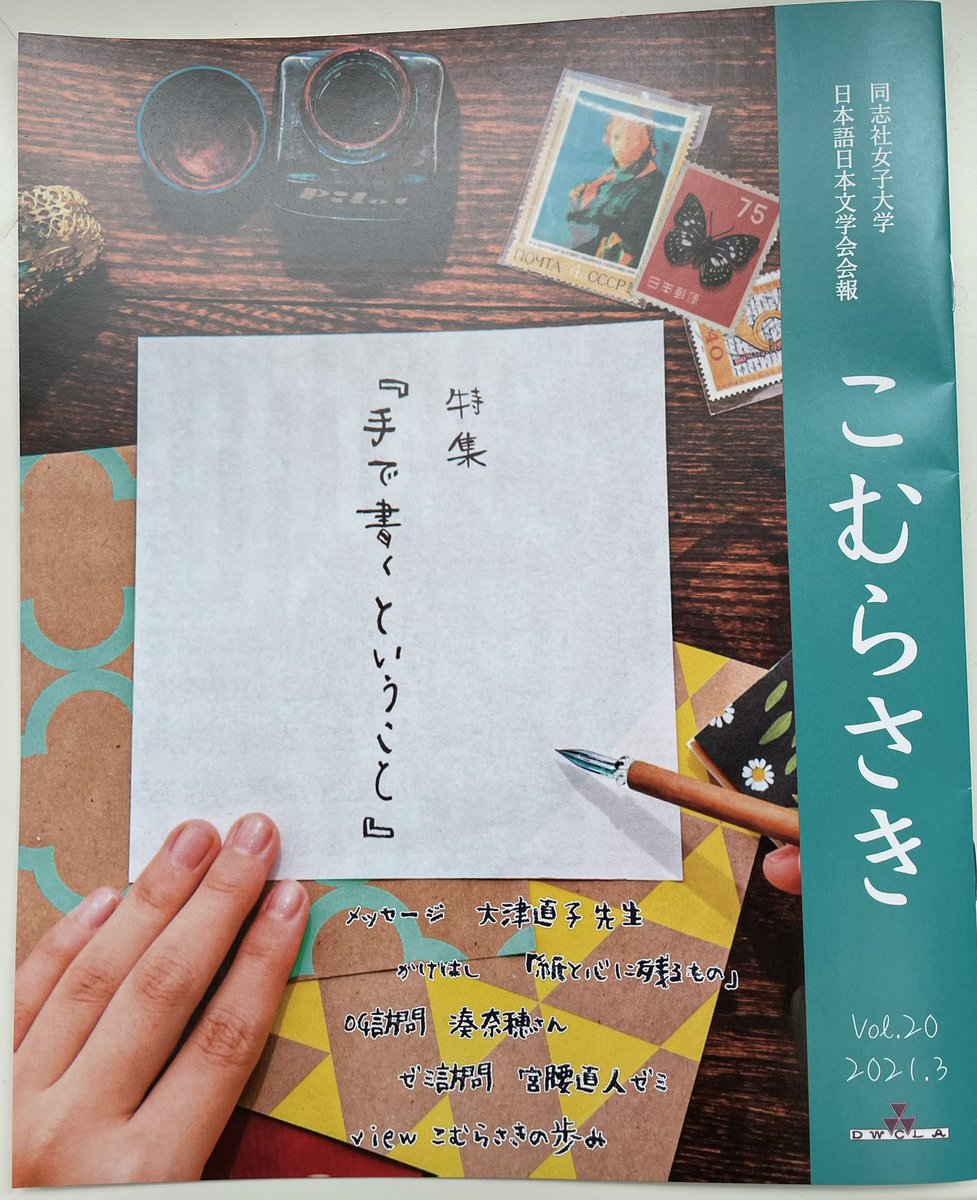 同志社女子大学
日本語日本文学会会報
こむらさき
Vol.20
2021.3
DWCLA
Pilot
ПОЧТА 4 СССР
75
日本郵便
40
特集
『手で書くということ』
メッセージ 大津直子先生
かけはし 「紙と心に残るもの」
OG訪問 湊奈穂さん
ゼミ訪問 宮腰直人ゼミ
view こむらさきの歩み